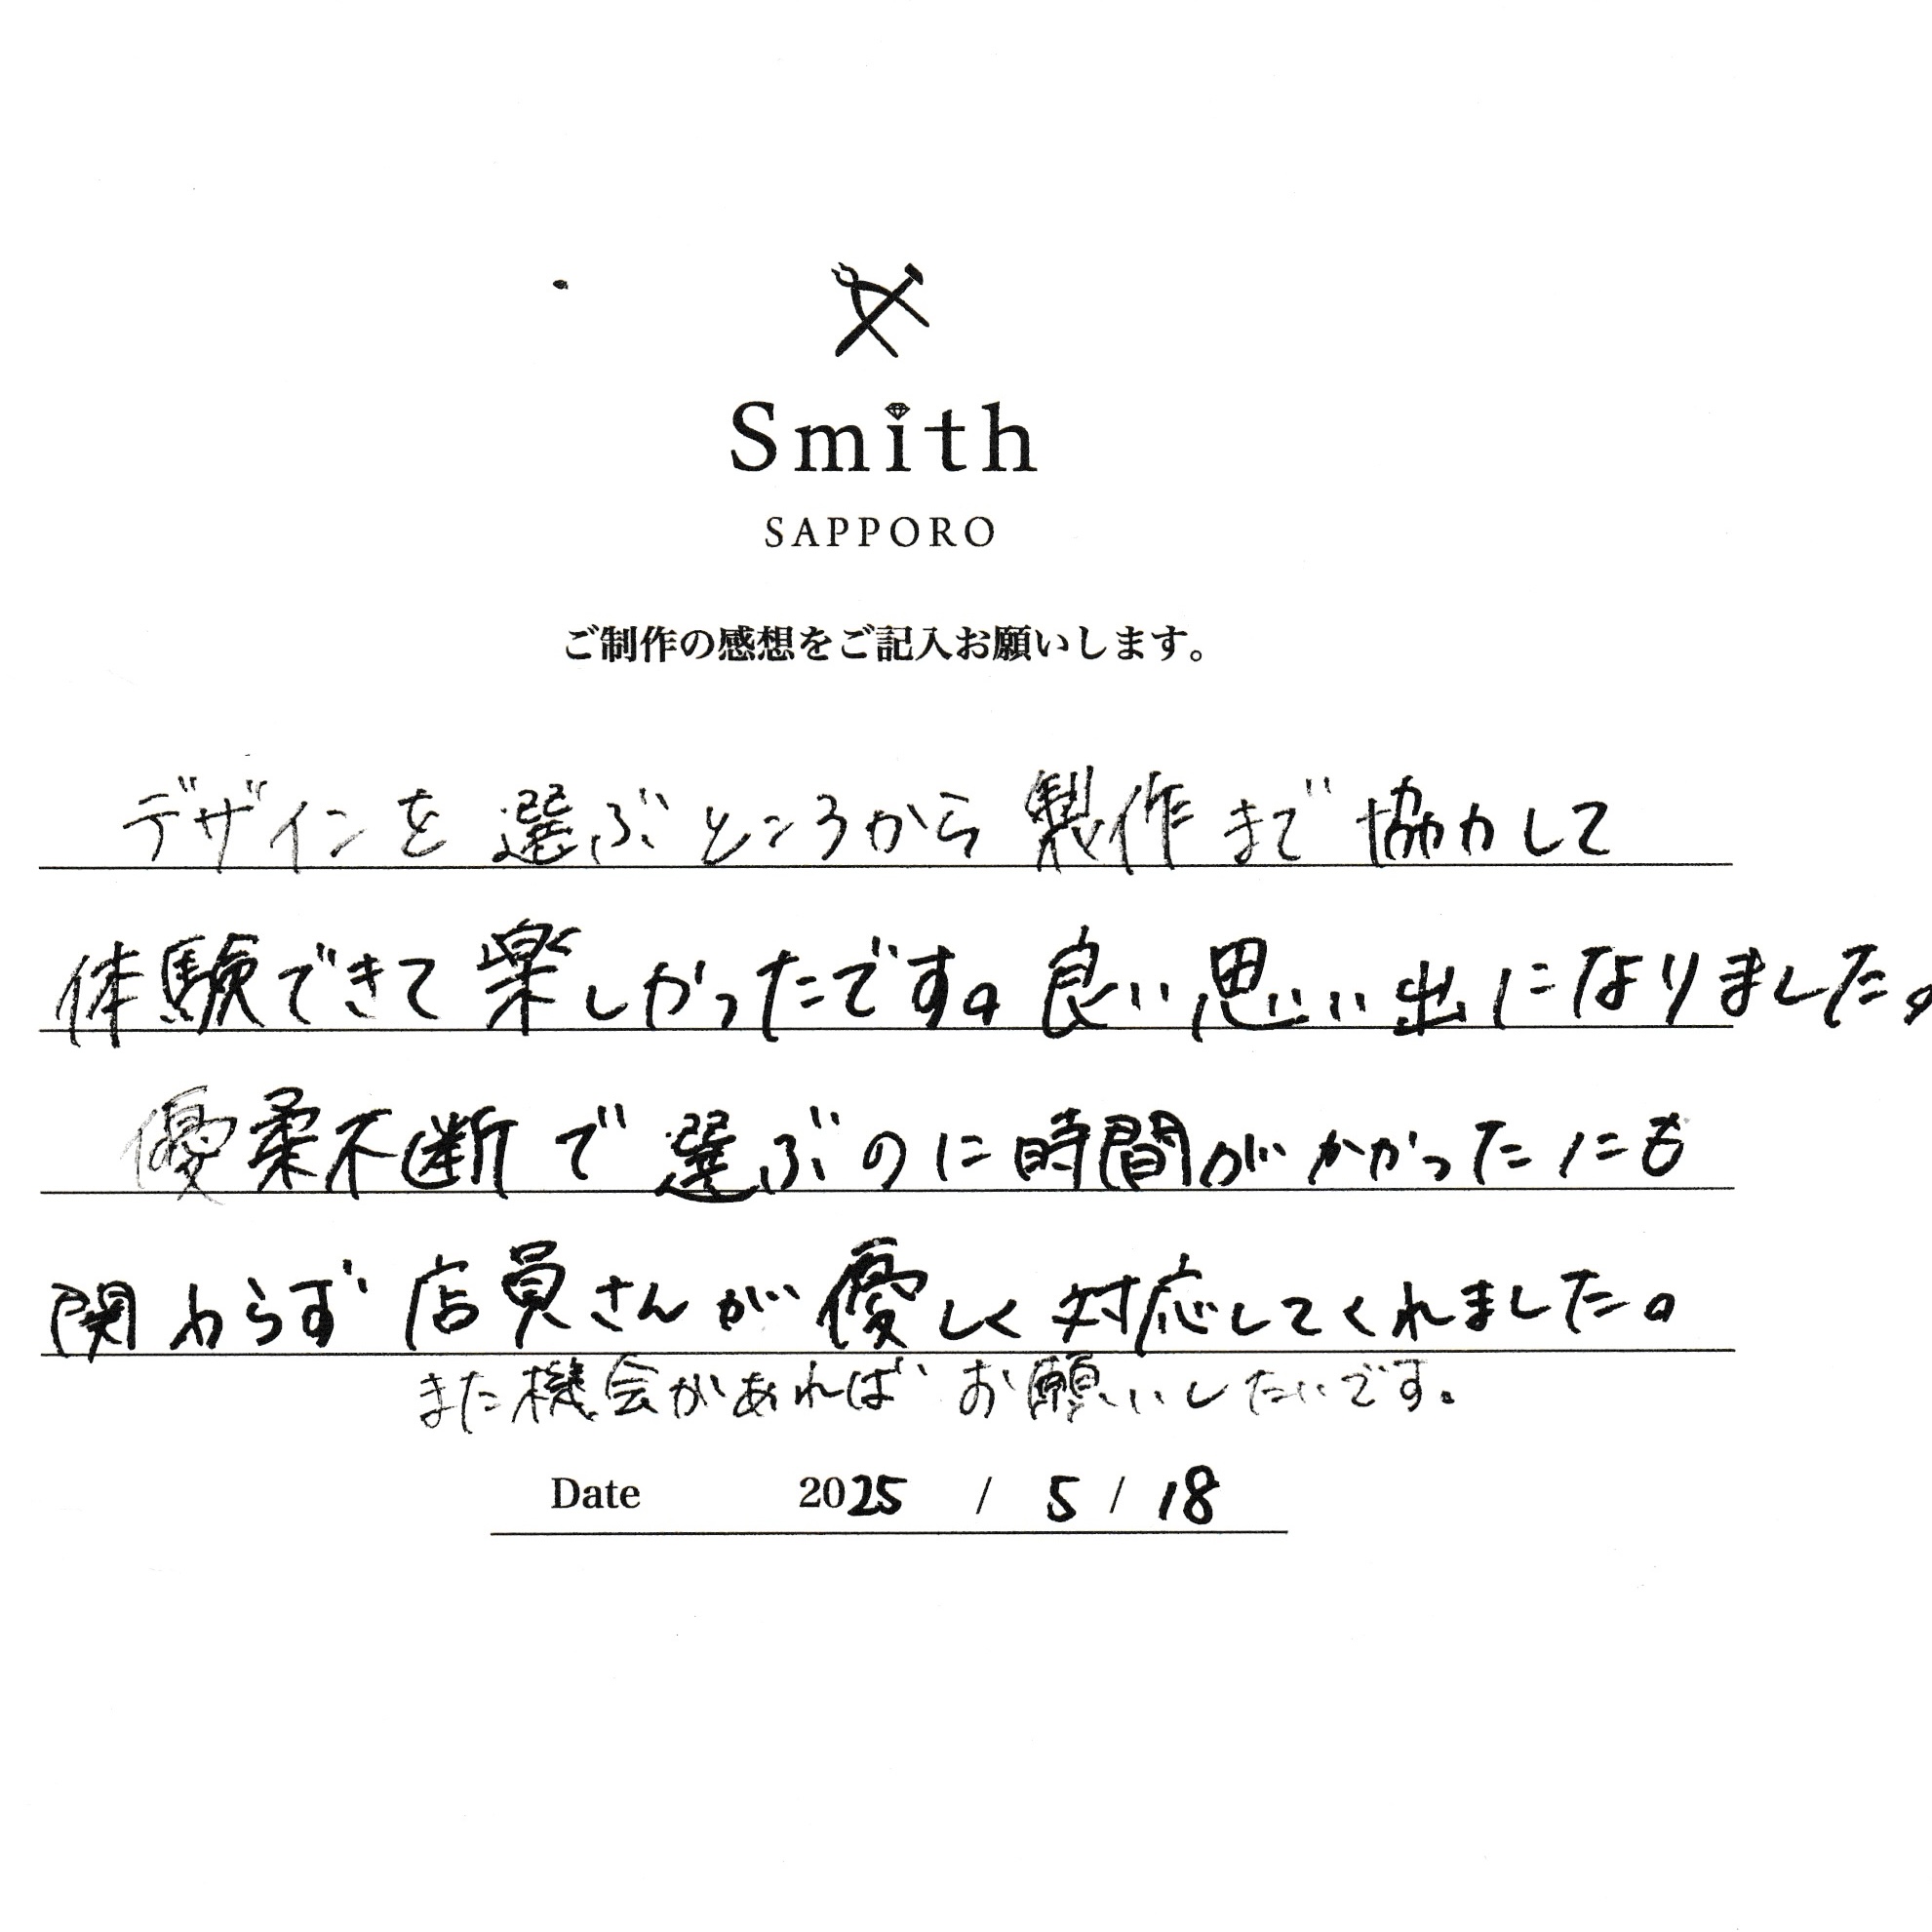 Smith
SAPPORO
ご制作の感想をご記入お願いします。
デザインを選ぶところから製作まで協力して
体験できて楽しかったです。良い思い出になりました。
優柔不断で選ぶのに時間がかかったにも
関わらず店員さんが優しく対応してくれました。
また機会があればお願いしたいです。
Date 2025 / 5 / 18